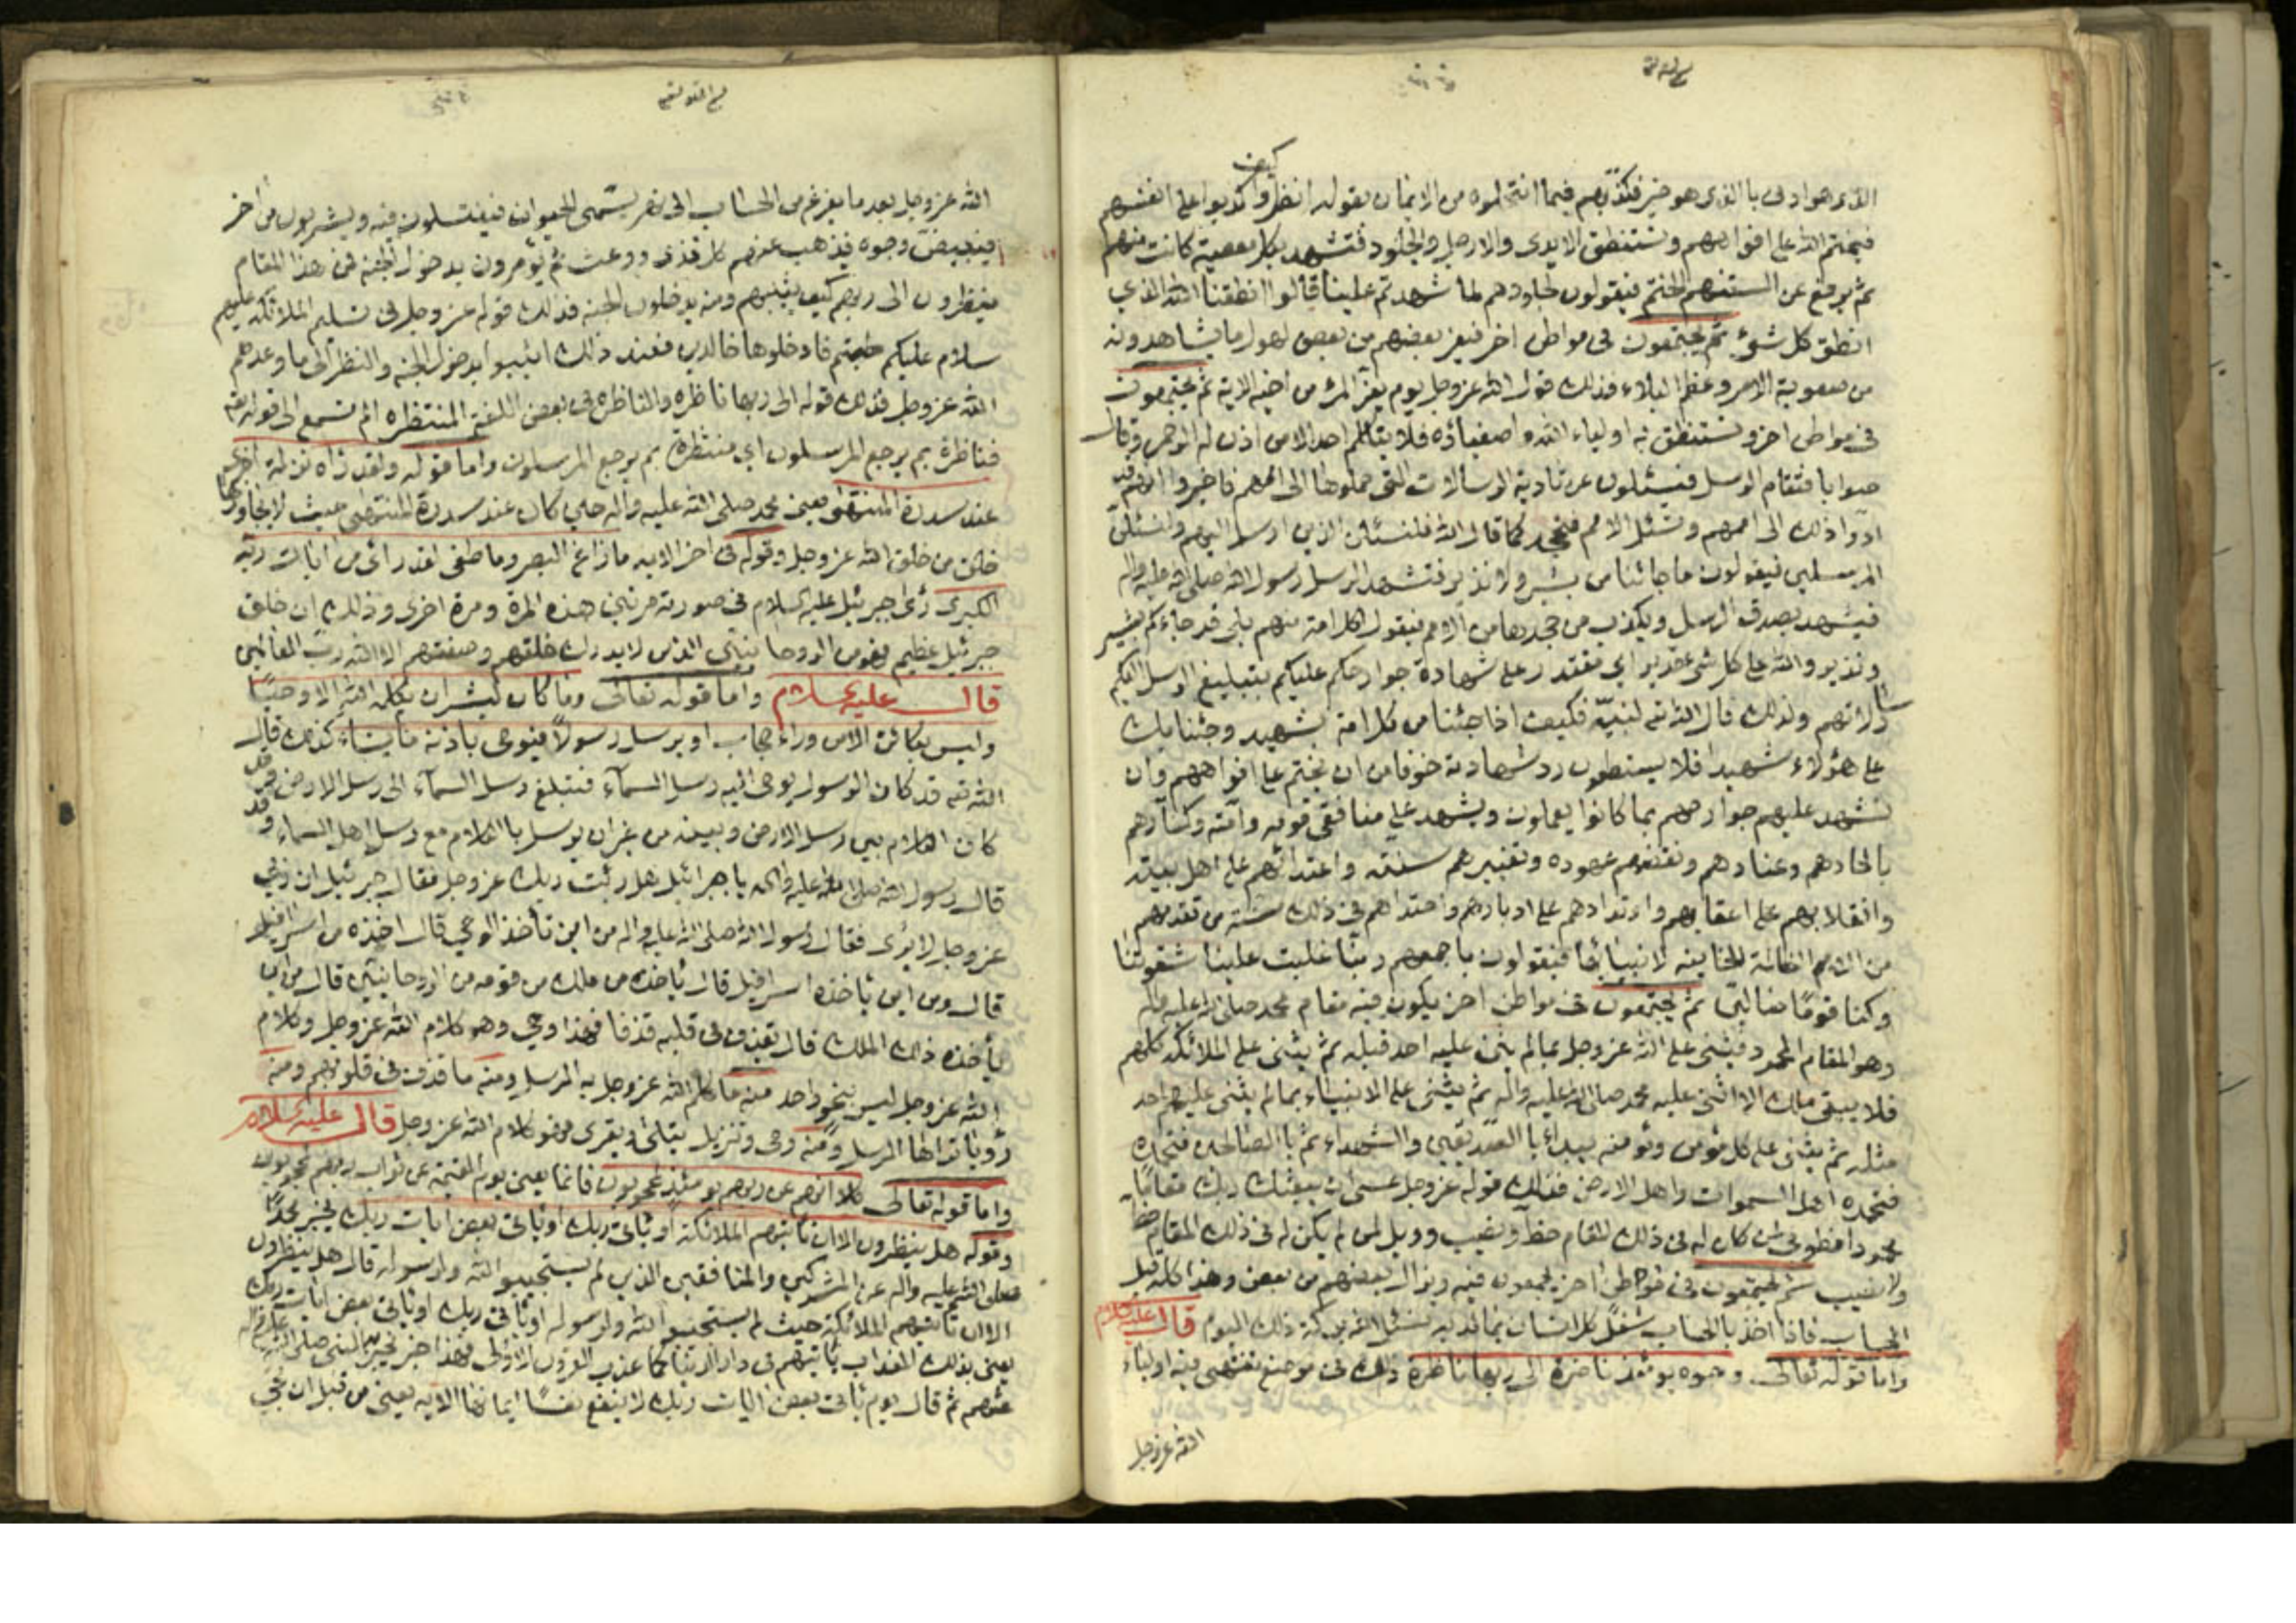 كيف
الذى هو ادنى باالذى هو خير فكذبهم فيما انتحلوه من الايمان بقوله انظروا كذبوا على انفسهم
فيختم الله على افواههم وتستنطق الايدى والارجل والجلود فتشهد بكل معصية كانت منهم
ثم يرفع عن السنتهم الختم فيقولون لجلودهم لما شهدتم علينا قالوا انطقنا الله الذي
انطق كل شئ ثم يجتمعون فى مواطن اخر فيفر بعضهم من بعض لهول ما يشاهدونه
من صعوبة الامر وعظم البلاء فذلك قول الله عز وجل يوم يفر المرء من اخيه الاية ثم يجتمعون
فى مواطن اخر وتستنطق فيه اولياء الله واصفياؤه فلا يتكلم احد الا من اذن له الرحمن وقال
صوابا فتقام الرسل فيسئلون عن تادية الرسالات التى حملوها الى اممهم فاخبروا انهم قد
ادوا ذلك الى اممهم وتسئل الامم فتجحد كما قال الله فلنسئلن الذين ارسل اليهم ولنسئلن
المرسلين فيقولون ما جائنا من بشير ولا نذير فتشهد الرسل رسول الله صلى الله عليه واله
فيشهد بصدق الرسل ويكذب من جحدها من الامم فيقول لكل امة منهم بلى قد جاءكم بشير
ونذير والله على كل شئ قدير اى مقتدر على شهادة جوارحكم عليكم بتبليغ الرسل اليكم
رسالاتهم ولذلك قال الله ته لنبيه فكيف اذا جئنا من كل امة بشهيد وجئنا بك
على هؤلاء شهيدا فلا يستطيعون رد شهادته خوفا من ان يختم على افواههم وان
تشهد عليهم جوارحهم بما كانوا يعملون ويشهد على منافقى قومه وامته وكفارهم
بالحادهم وعنادهم ونقضهم عهوده وتغييرهم سنته واعتدائهم على اهل بيته
وانقلابهم على اعقابهم وارتدادهم على ادبارهم واحتذاهم فى ذلك سنة من تقدمهم
من الامم الظالمة الخاينة لانبيائها فيقولون باجمعهم ربنا غلبت علينا شقوتنا
وكنا قوما ضالين ثم يجتمعون فى مواطن اخر يكون فيه مقام محمد صلى الله عليه واله
وهو المقام المحمود فيثنى على الله عز وجل بما لم يثن عليه احد قبله ثم يثنى على الملائكة كلهم
فلا يبقى ملك الا اثنى عليه محمد صلى الله عليه واله ثم يثنى على الانبياء بما لم يثنى عليهم احد
مثله ثم يثنى على كل مؤمن ومؤمنة يبدأ باالصديقين والشهداء ثم باالصالحين فتحمده
فتحمده اهل السموات واهل الارض فذلك قوله عز وجل عسى ان يبعثك ربك مقاما
محمودا فطوبى لمن كان له فى ذلك المقام حظ ونصيب وويل لمن لم يكن له فى ذلك المقام حظ
ولا نصيب ثم يجتمعون فى مواطن اخر يجمعون فيه ويزال بعضهم من بعض وهذا كله قبل
الحساب فاذا اخذ باالحساب شغل كل انسان بما لديه نسئل الله بركة ذلك اليوم قال عليه السلام
واما قوله تعالى وجوه يومئذ ناضرة الى ربها ناظرة ذلك فى موضع ينتهى فيه اولياء
الله عز وجل
الله عز وجل بعد ما يفرغ من الحساب الى نهر يسمى الحيوان فيغتسلون فيه ويشربون من اخر
فيبيض وجوه فيذهب عنهم كل قذى ووعث ثم يؤمرون بدخول الجنة فمن هذا المقام
ينظرون الى ربهم كيف يثيبهم ومنه يدخلون الجنة فذلك قوله عز وجل فى تسليم الملائكة عليهم
سلام عليكم طبتم فادخلوها خالدين فعند ذلك اثيبوا بدخول الجنة والنظر الى ما وعدهم
الله عز وجل فذلك قوله الى ربها ناظره والناظرة فى بعض اللغة المنتظره الم تسمع الى قوله تع
فناظرة بم يرجع المرسلون اي منتظرة بم يرجع المرسلون واما قوله ولقد رآه نزلة اخرى
عند سدرة المنتهى يعنى محمد صلى الله عليه واله حين كان عند سدرة المنتهى حيث لا يجاوزها
خلق من خلق الله عز وجل وقوله فى اخر الايه ما زاغ البصر وما طغى لقد رأى من ايات ربه
الكبرى رأى جبرئيل عليه السلام فى صورته مرتين هذه المرة ومرة اخرى وذلك ان خلق
جبرئيل عظيم فهو من الروحانيين الذين لا يدرك خلقهم وصفتهم الا الله رب العالمين
قال عليه السلام واما قوله تعالى وما كان لبشر ان يكلمه الله الا وحيا
وليس بكائن الا من وراء حجاب او يرسل رسولا فيوحى باذنه ما يشاء كذلك قال
الله ته قد كان الرسول يوحى اليه رسل السماء فتبلغ رسل السماء الى رسل الارض وقد
كان الكلام بين رسل الارض وبينه من غير ان يرسل باالكلام مع رسل اهل السماء وقد
قال رسول الله صلى الله عليه واله يا جبرائيل هل رئيت ربك عز وجل فقال جبرئيل ان ربي
عز وجل لا يرى فقال رسول الله صلى الله عليه واله من اين تأخذ الوحي قال اخذه من اسرافيل
قال ومن اين يأخذه اسرافيل قال يأخذه من ملك من فوقه من الروحانيين قال من اين
يأخذه ذلك الملك قال يقذف فى قلبه قذفا فهذا وحي وهو كلام الله عز وجل وكلام
الله عز وجل ليس بنحو واحد منه ما كلم الله عز وجل به المرسل ومنه ما قذف فى قلوبهم ومنه
رؤيا تراها المرسل ومنه وحى وتنزيل يتلى ويقرى فهو كلام الله عز وجل قال عليه السلام
واما قوله تعالى كلا انهم عن ربهم يومئذ لمحجوبون فانما يعنى يوم القيمة عن ثواب ربهم لمحجوبون
وقوله هل ينظرون الا ان تأتيهم الملائكة او يأتى ربك او يأتى بعض ايات ربك يخبر محمدا
صلى الله عليه واله عن المشركين والمنافقين الذين لم يستجيبوا الله ولرسوله قال هل ينظرون
الا ان تأتيهم الملائكة حيث لم يستجيبوا الله ولرسوله او يأتى ربك او يأتى بعض ايات ربك
يعنى بذلك العذاب يأتيهم فى دار الدنيا كما عذب القرون الاولى فهذا خبر يخبر به النبى صلى الله عليه واله
عنهم ثم قال يوم يأتى بعض ايات ربك لا ينفع نفسا ايمانها الايه يعنى من قبل ان يجي